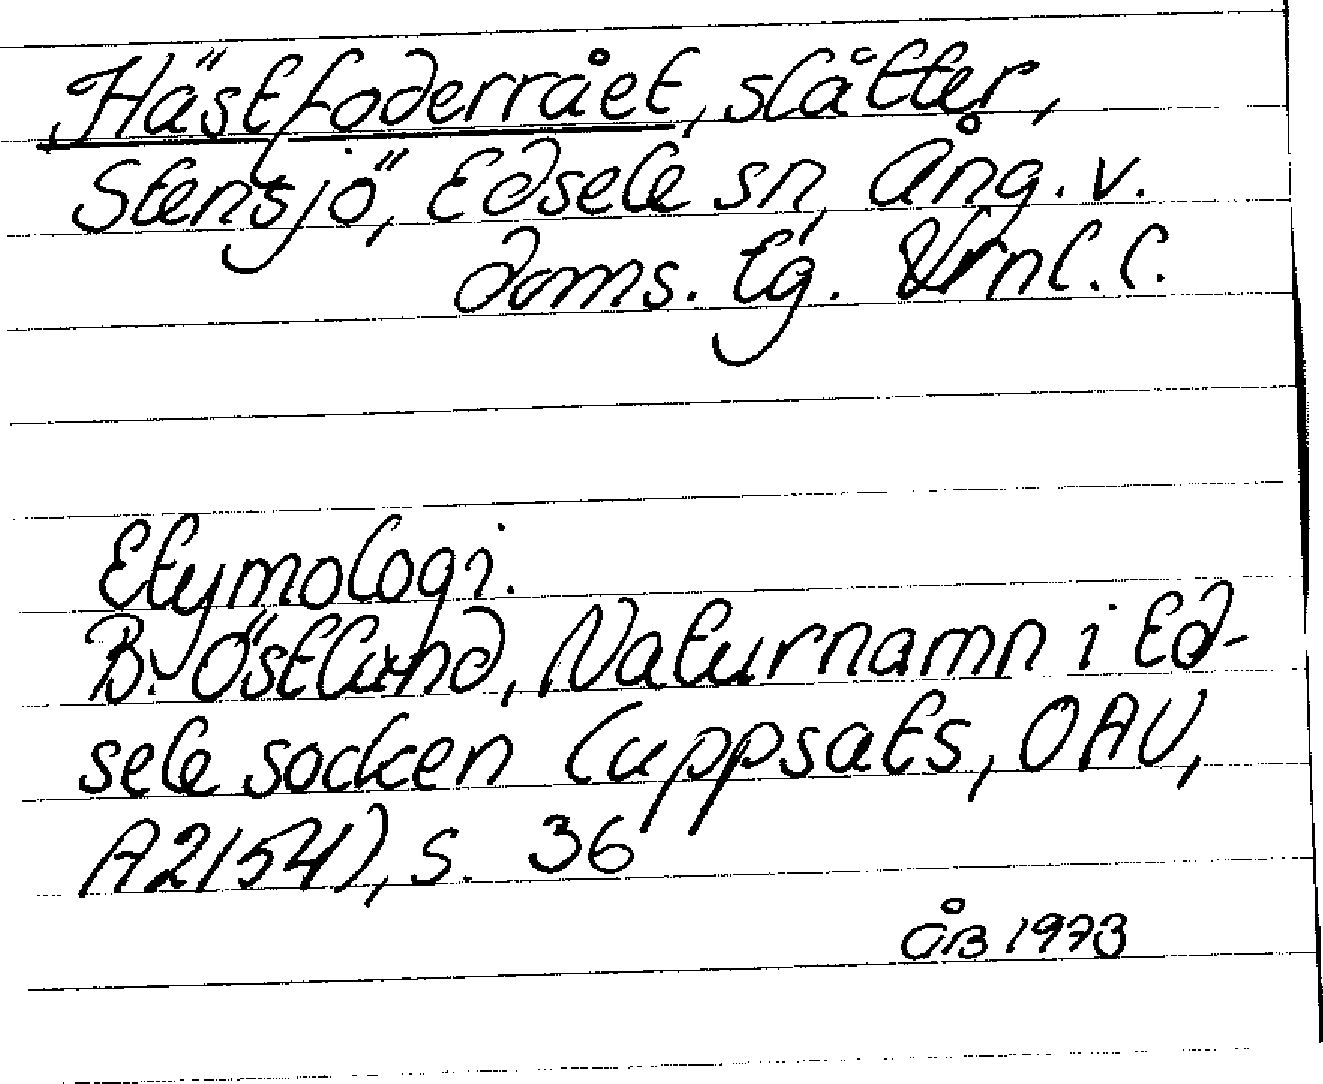 Hästfoderrået, slåtter,
Stensjö, Edsele sn, Ång. v.
doms. lg. Vrnl. l.
Etymologi.
B. Östlund, Naturnamn i Ed-
sele socken (uppsats, OAU,
A2154), s. 36
ÅB 1973